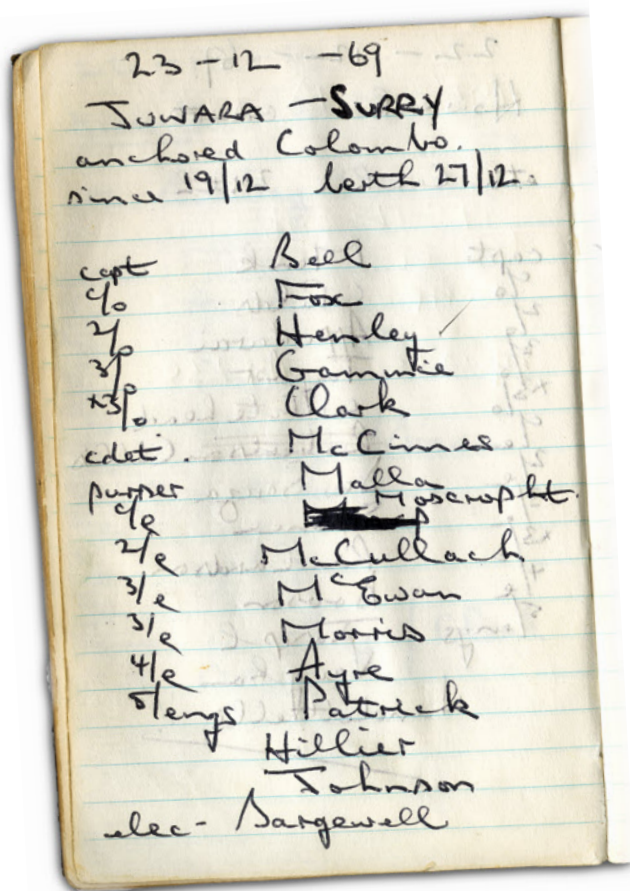 23-12-69
JUWARA - SURRY
anchored Colombo.
since 19/12 berth 27/12
capt Bell
c/o Fox
2/o Hensley
3/o Gammie
x3/o Clark
cdet. McCimes
purser Malla
c/e Moscropht.
2/e McCullach
3/e McEwan
3/e Morris
4/e Ayre
5/engs Patrick
Hillier
Johnson
elec- Bargewell